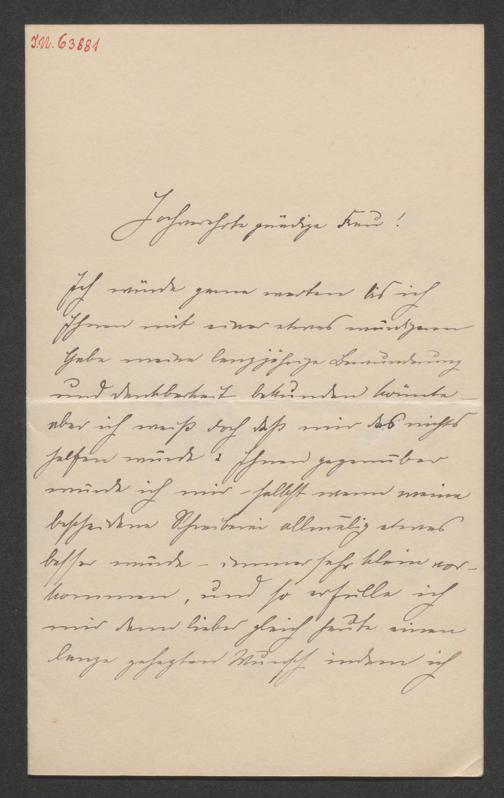 I.N. 63881
Hochverehrte gnädige Frau!
Ich würde gerne warten bis ich
Ihnen mit einer etwas
Gabe meine langjährige Bewunderung
und Dankbarkeit bekunden könnte
aber ich weiß doch daß mir das nichts
helfen würde: Ihnen gegenüber
würde ich mir – selbst wenn meine
bescheidene Schreiberei allmälig etwas
besser würde – immer sehr klein vor-
kommen, und so erfülle ich
mir denn lieber gleich heute einen
lange gehegten Wunsch indem ich